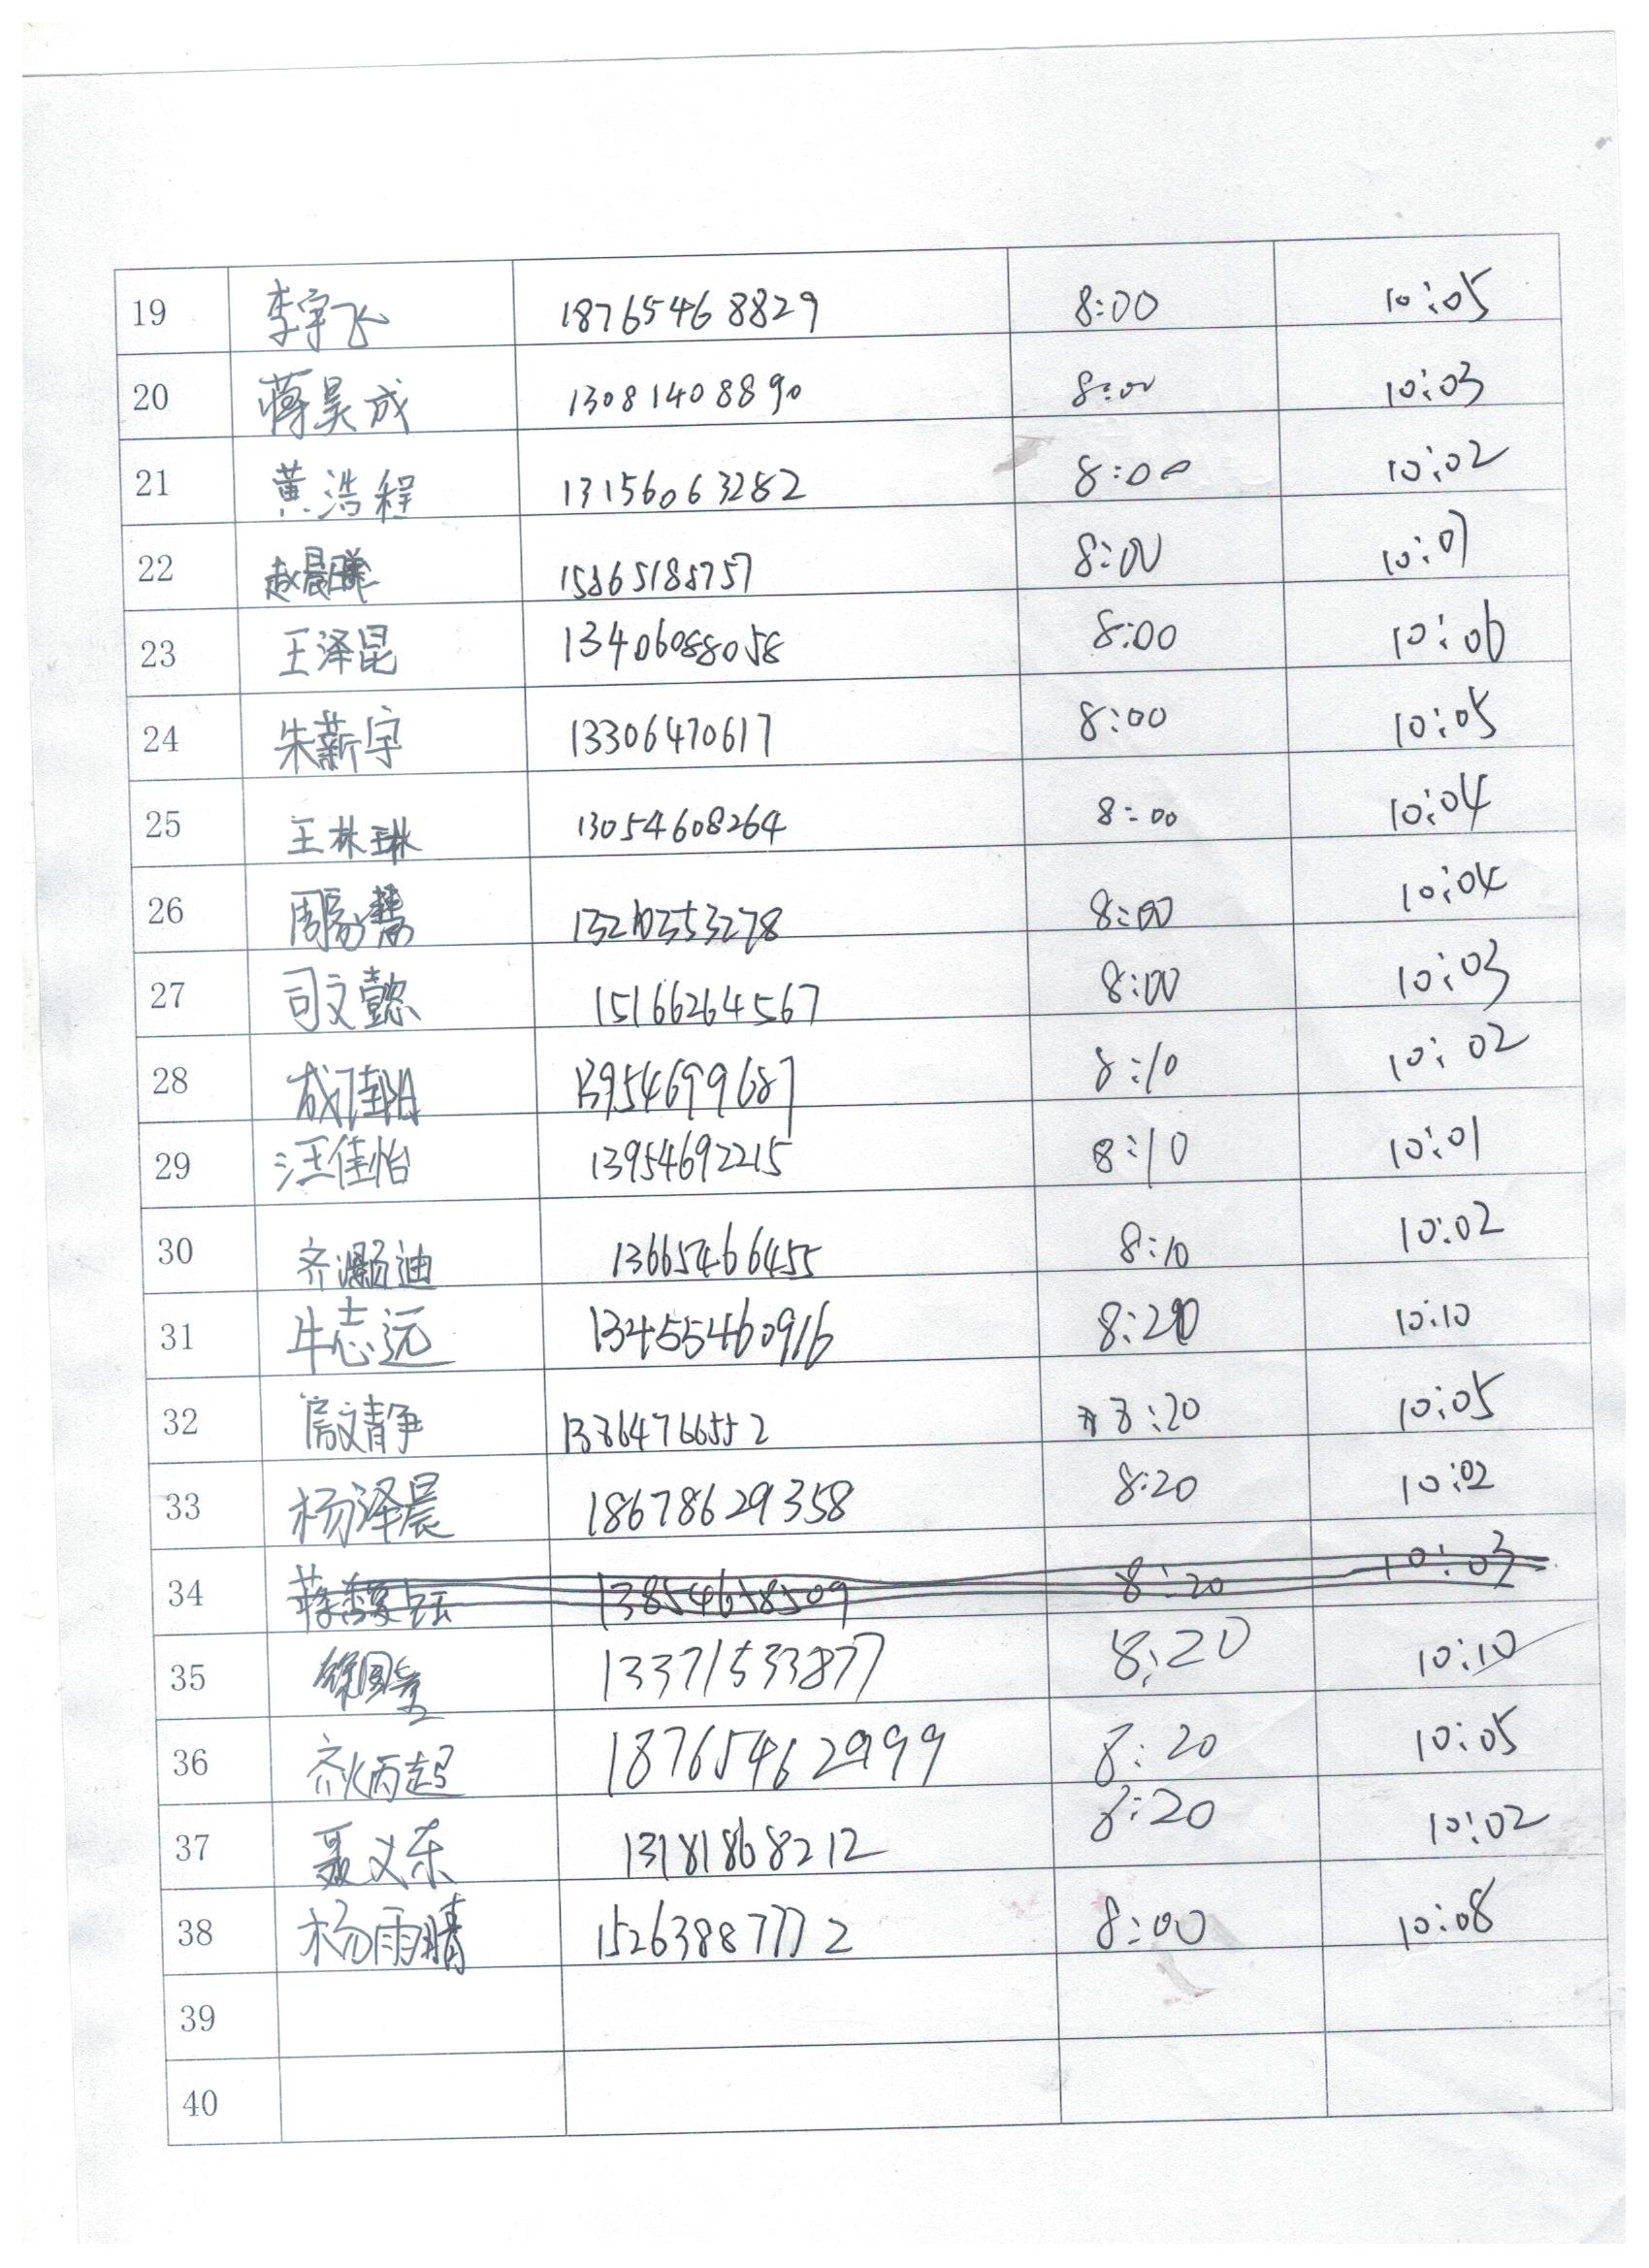 19 李宇飞 18765468829 8:00 10:05
20 蒋昊成 13081408890 8:00 10:03
21 黄浩程 13156063282 8:00 10:02
22 赵晨曦 15865188757 8:00 10:07
23 王泽昆 13406088058 8:00 10:06
24 朱薪宇 13306470617 8:00 10:05
25 王林琳 13054608264 8:00 10:04
26 周 8:00 10:04
27 司文懿 15166264567 8:00 10:03
28 成佳阳 13954699687 8:10 10:02
29 汪佳怡 13954692215 8:10 10:01
30 齐灏迪 13665466455 8:10 10:02
31 牛志远 13455460916 8:20 10:10
32 文静 13864766552 8:20 10:05
33 杨泽晨 18678629358 8:20 10:02
34 蒋 13854658509 8:20 10:03
35 13371533877 8:20 10:10
36 齐炳起 18765462999 8:20 10:05
37 聂义东 13181868212 8:20 10:02
38 杨雨晴 15263887772 8:00 10:08
39
40